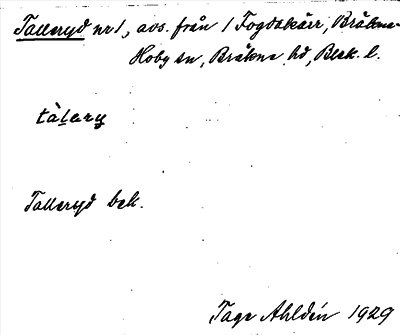 Talleryd nr 1, avs. från 1 Fogdakärr, Bräkne-
Hoby sn, Bräkne hd, Blek. l.
tàlary
Talleryd bek.
Tage Ahldén 1929